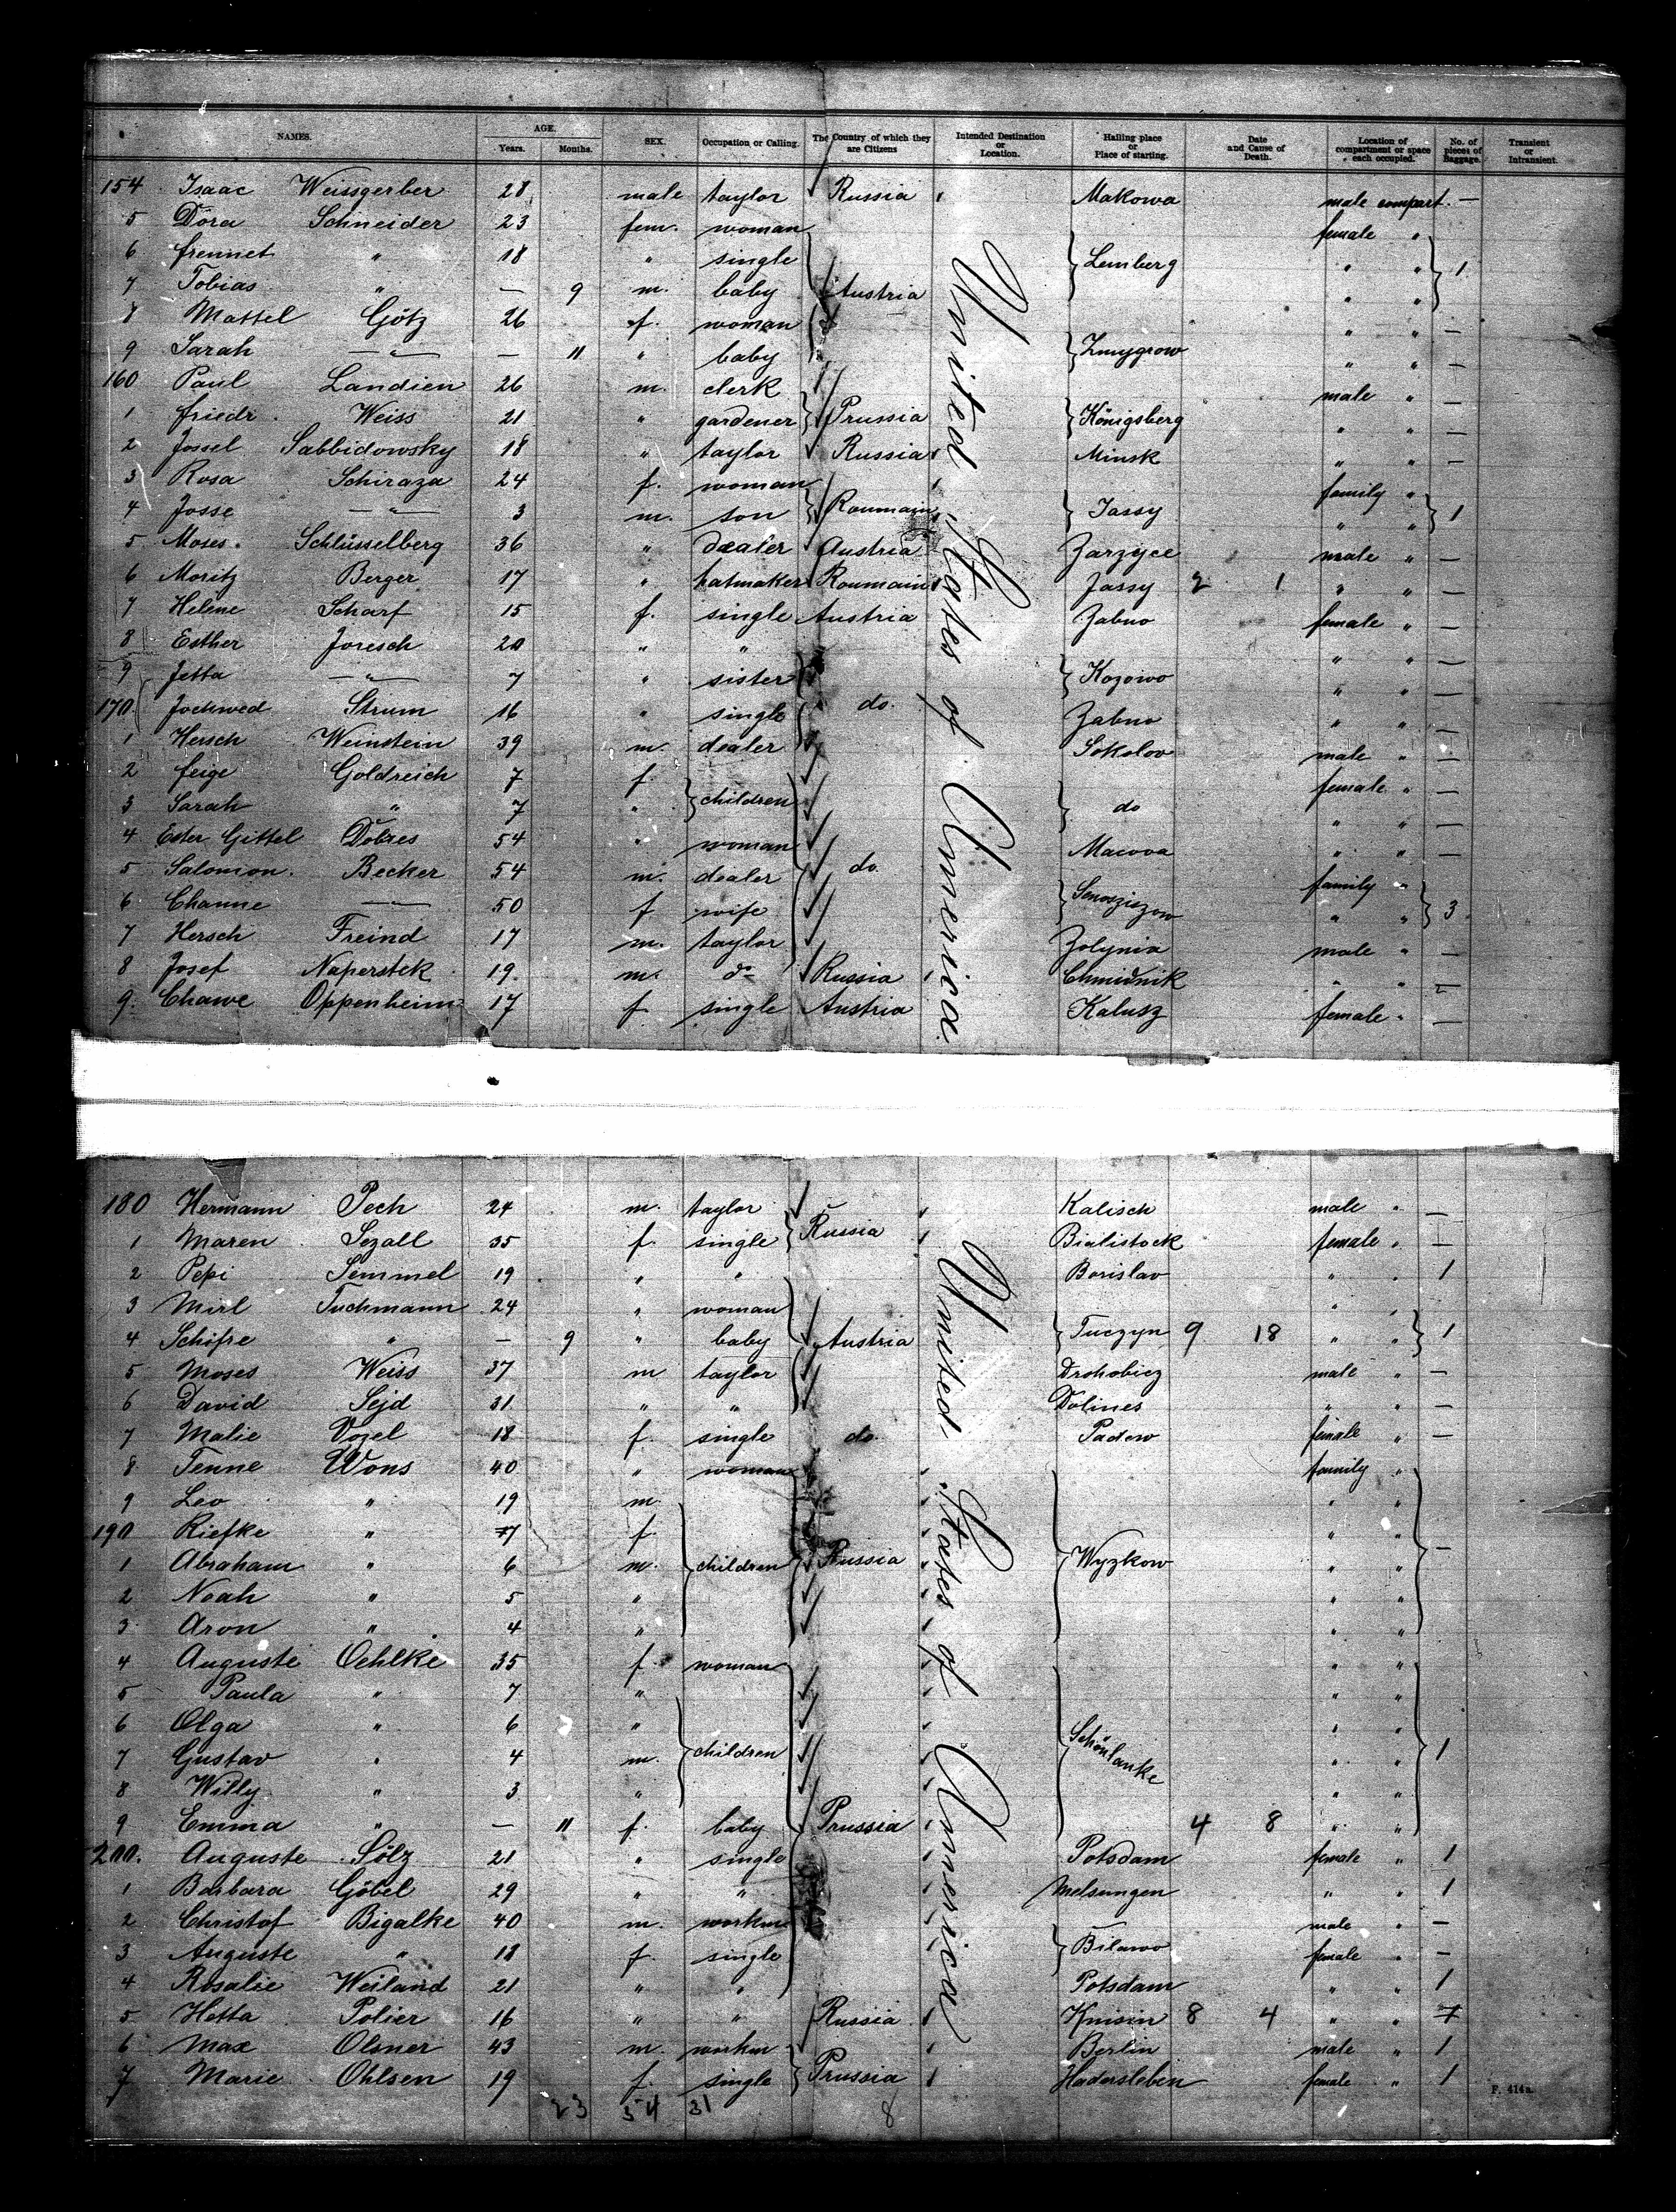 NAMES. AGE. Years. Months. SEX. Occupation or Calling. The Country of which they are Citizens Intended Destination or Location. Hailing place or Place of starting. Date and Cause of Death. Location of compartment or space each occupied. No. of pieces of Baggage. Transient or Intransient.
154 Isaac Weissgerber 28 male taylor Russia Makowa male compart. —
5 Dora Schneider 23 fem. woman female "
6 " 18 " single Lemberg " " 1
7 Tobias " — 9 m. baby Austria " "
8 Mattel Götz 26 f. woman " " —
9 Sarah —"— — 11 " baby Zmygrow " " —
160 Paul Landien 26 m. clerk male " —
1 Friedr. Weiss 21 " gardener Prussia Königsberg " " —
2 Jossel Sabbidowsky 18 " taylor Russia Minsk " " —
3 Rosa Schiraza 24 f. woman family "
4 Josse —"— 3 m. son Roumain Jassy " " 1
5 Moses. Schlüsselberg 36 " dealer Austria Zarzyce male " —
6 Moritz Berger 17 " hatmaker Roumain Jassy 2 1 " " —
7 Helene Scharf 15 f. single Austria Zabno female " —
8 Esther Joresch 20 " " " " —
9 Jetta —"— 7 " sister Kozowo " " —
170 Jochwed Strum 16 " single do. Zabno " " —
1 Hersch Weinstein 39 m. dealer Sokolow male " —
2 Feige Goldreich 7 f. female " —
3 Sarah " 7 " children do " " —
4 Ester Gittel Dobres 54 " woman Macova " " —
5 Salomon. Becker 54 m. dealer do. family "
6 Channe —"— 50 f wife " " 3
7 Hersch Freind 17 m. taylor Zolynia male " —
8 Josef Naperstek 19. m. do Russia Chmidnik " " —
9. Chawe Oppenheim 17 f. single Austria Kalusz female " —
180 Hermann Pech 24 m. taylor Kalisch male " —
1 Maren Sezall 35 f. single Russia Bialistock female " —
2 Pepi Semmel 19 " " Borislav " " 1
3 Mirl Tuchmann 24 " woman " "
4 Schifre " — 9 " baby Austria Tuczyn 9 18 " " 1
5 Moses Weiss 37 m taylor Drohobicz male " —
6 David Sejd 31 " " Dolines " " —
7 Malie Vogel 18 f. single do. Padew female " —
8 Tenne Wons 40 " woman family "
9 Leo " 19 m. " "
190 Riefke " 7 f. " "
1 Abraham " 6 m. children Russia Wyzkow " " —
2 Noah " 5 " " "
3 Aron " 4 " " "
4 Auguste Oehlke 35 f woman " "
5 Paula " 7 " " "
6 Olga " 6 " " "
7 Gustav " 4 m. children Schönlanke " " 1
8 Willy " 3 " " "
9 Emma " — 11 f. baby Prussia 4 8 " "
200. Auguste Sölz 21 " single Potsdam female " 1
1 Barbara Göbel 29 " " Melsungen " " 1
2 Christof Bigalke 40 m. workm male " —
3 Auguste " 18 f. single Bilawo female " —
4 Rosalie Weiland 21 " " Potsdam " " 1
5 Hetta Polier 16 " " Russia Knisin 8 4 " "
6 Max Olsner 43 m. workm Berlin male " 1
7 Marie Ohlsen 19 f. single Prussia Hadersleben female " 1
United States of America.
United States of America
23 54 31 8
F. 414a.